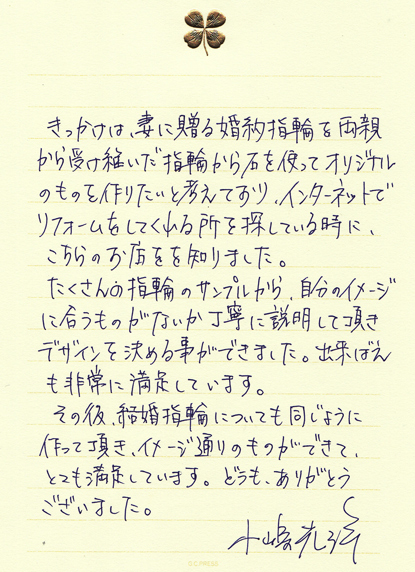 きっかけは、妻に贈る婚約指輪を両親
から受け継いだ指輪から石を使ってオリジナル
のものを作りたいと考えており、インターネットで
リフォームをしてくれる所を探している時に、
こちらのお店をを知りました。
たくさんの指輪のサンプルから、自分のイメージ
に合うものがないか丁寧に説明して頂き
デザインを決める事ができました。出来ばえ
も非常に満足しています。
その後、結婚指輪についても同じように
作って頂き、イメージ通りのものができて、
とても満足しています。どうも、ありがとう
ございました。